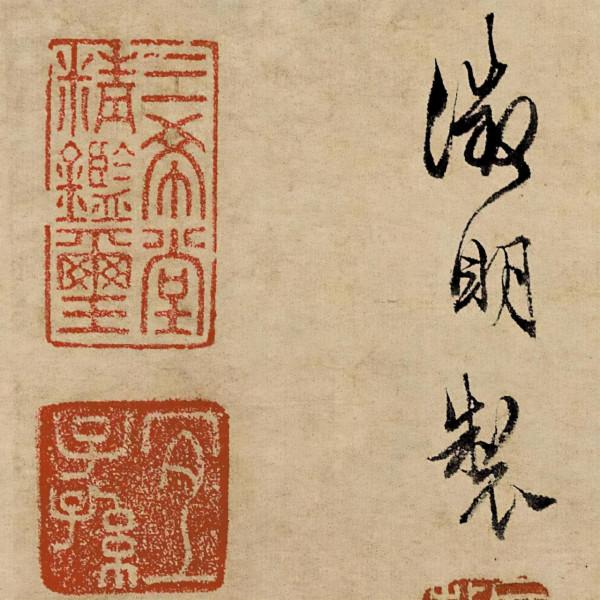 徵明製
三希堂
精鑑璽
宜
子孫